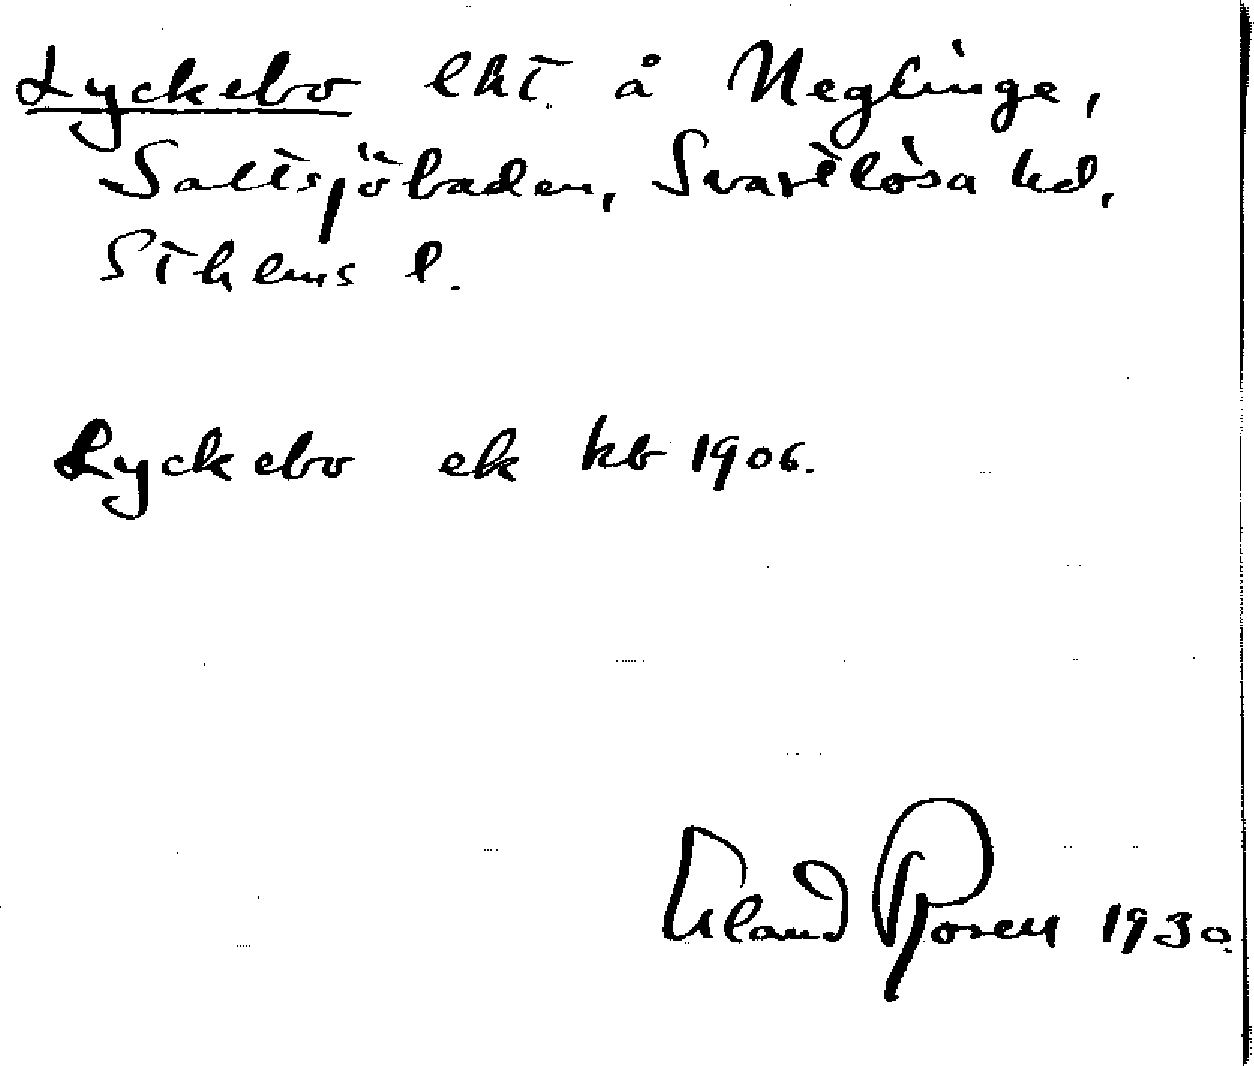 Lyckebo lht å Neglinge,
Saltsjöbaden, Svartlösa hd,
Sthlms l.
Lyckebo ek kb 1906.
Erland Rosell 1930.